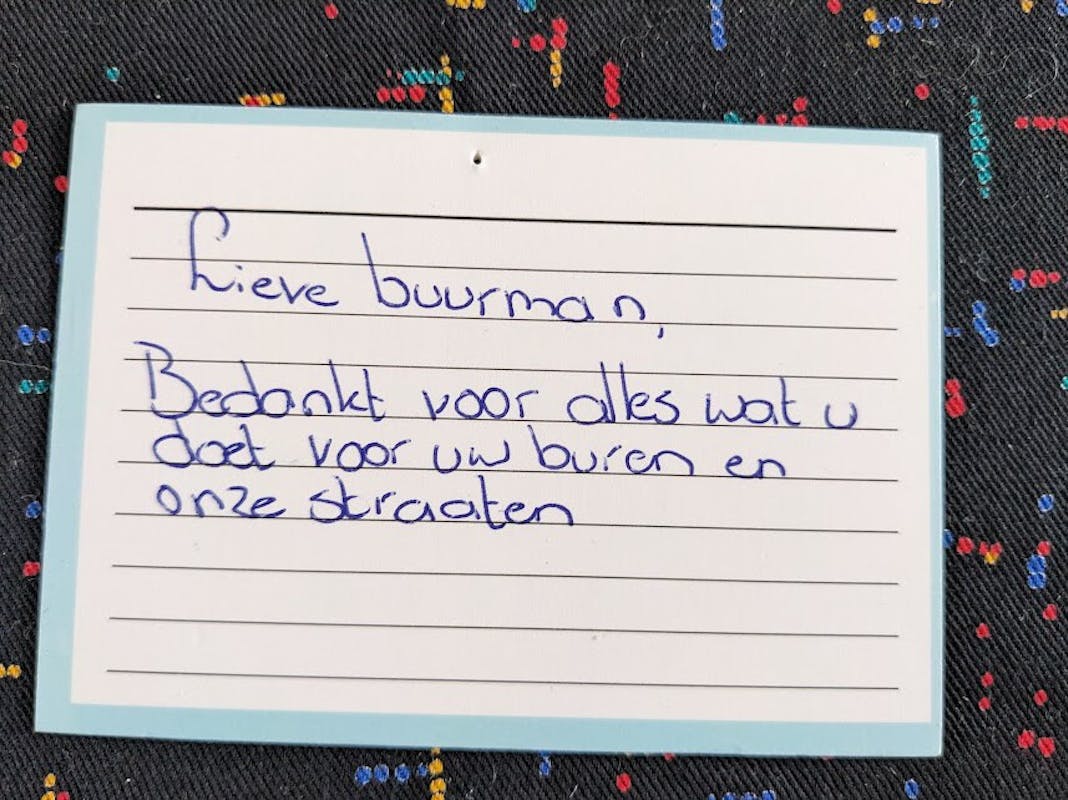 Lieve buurman,
Bedankt voor alles wat u
doet voor uw buren en
onze straaten